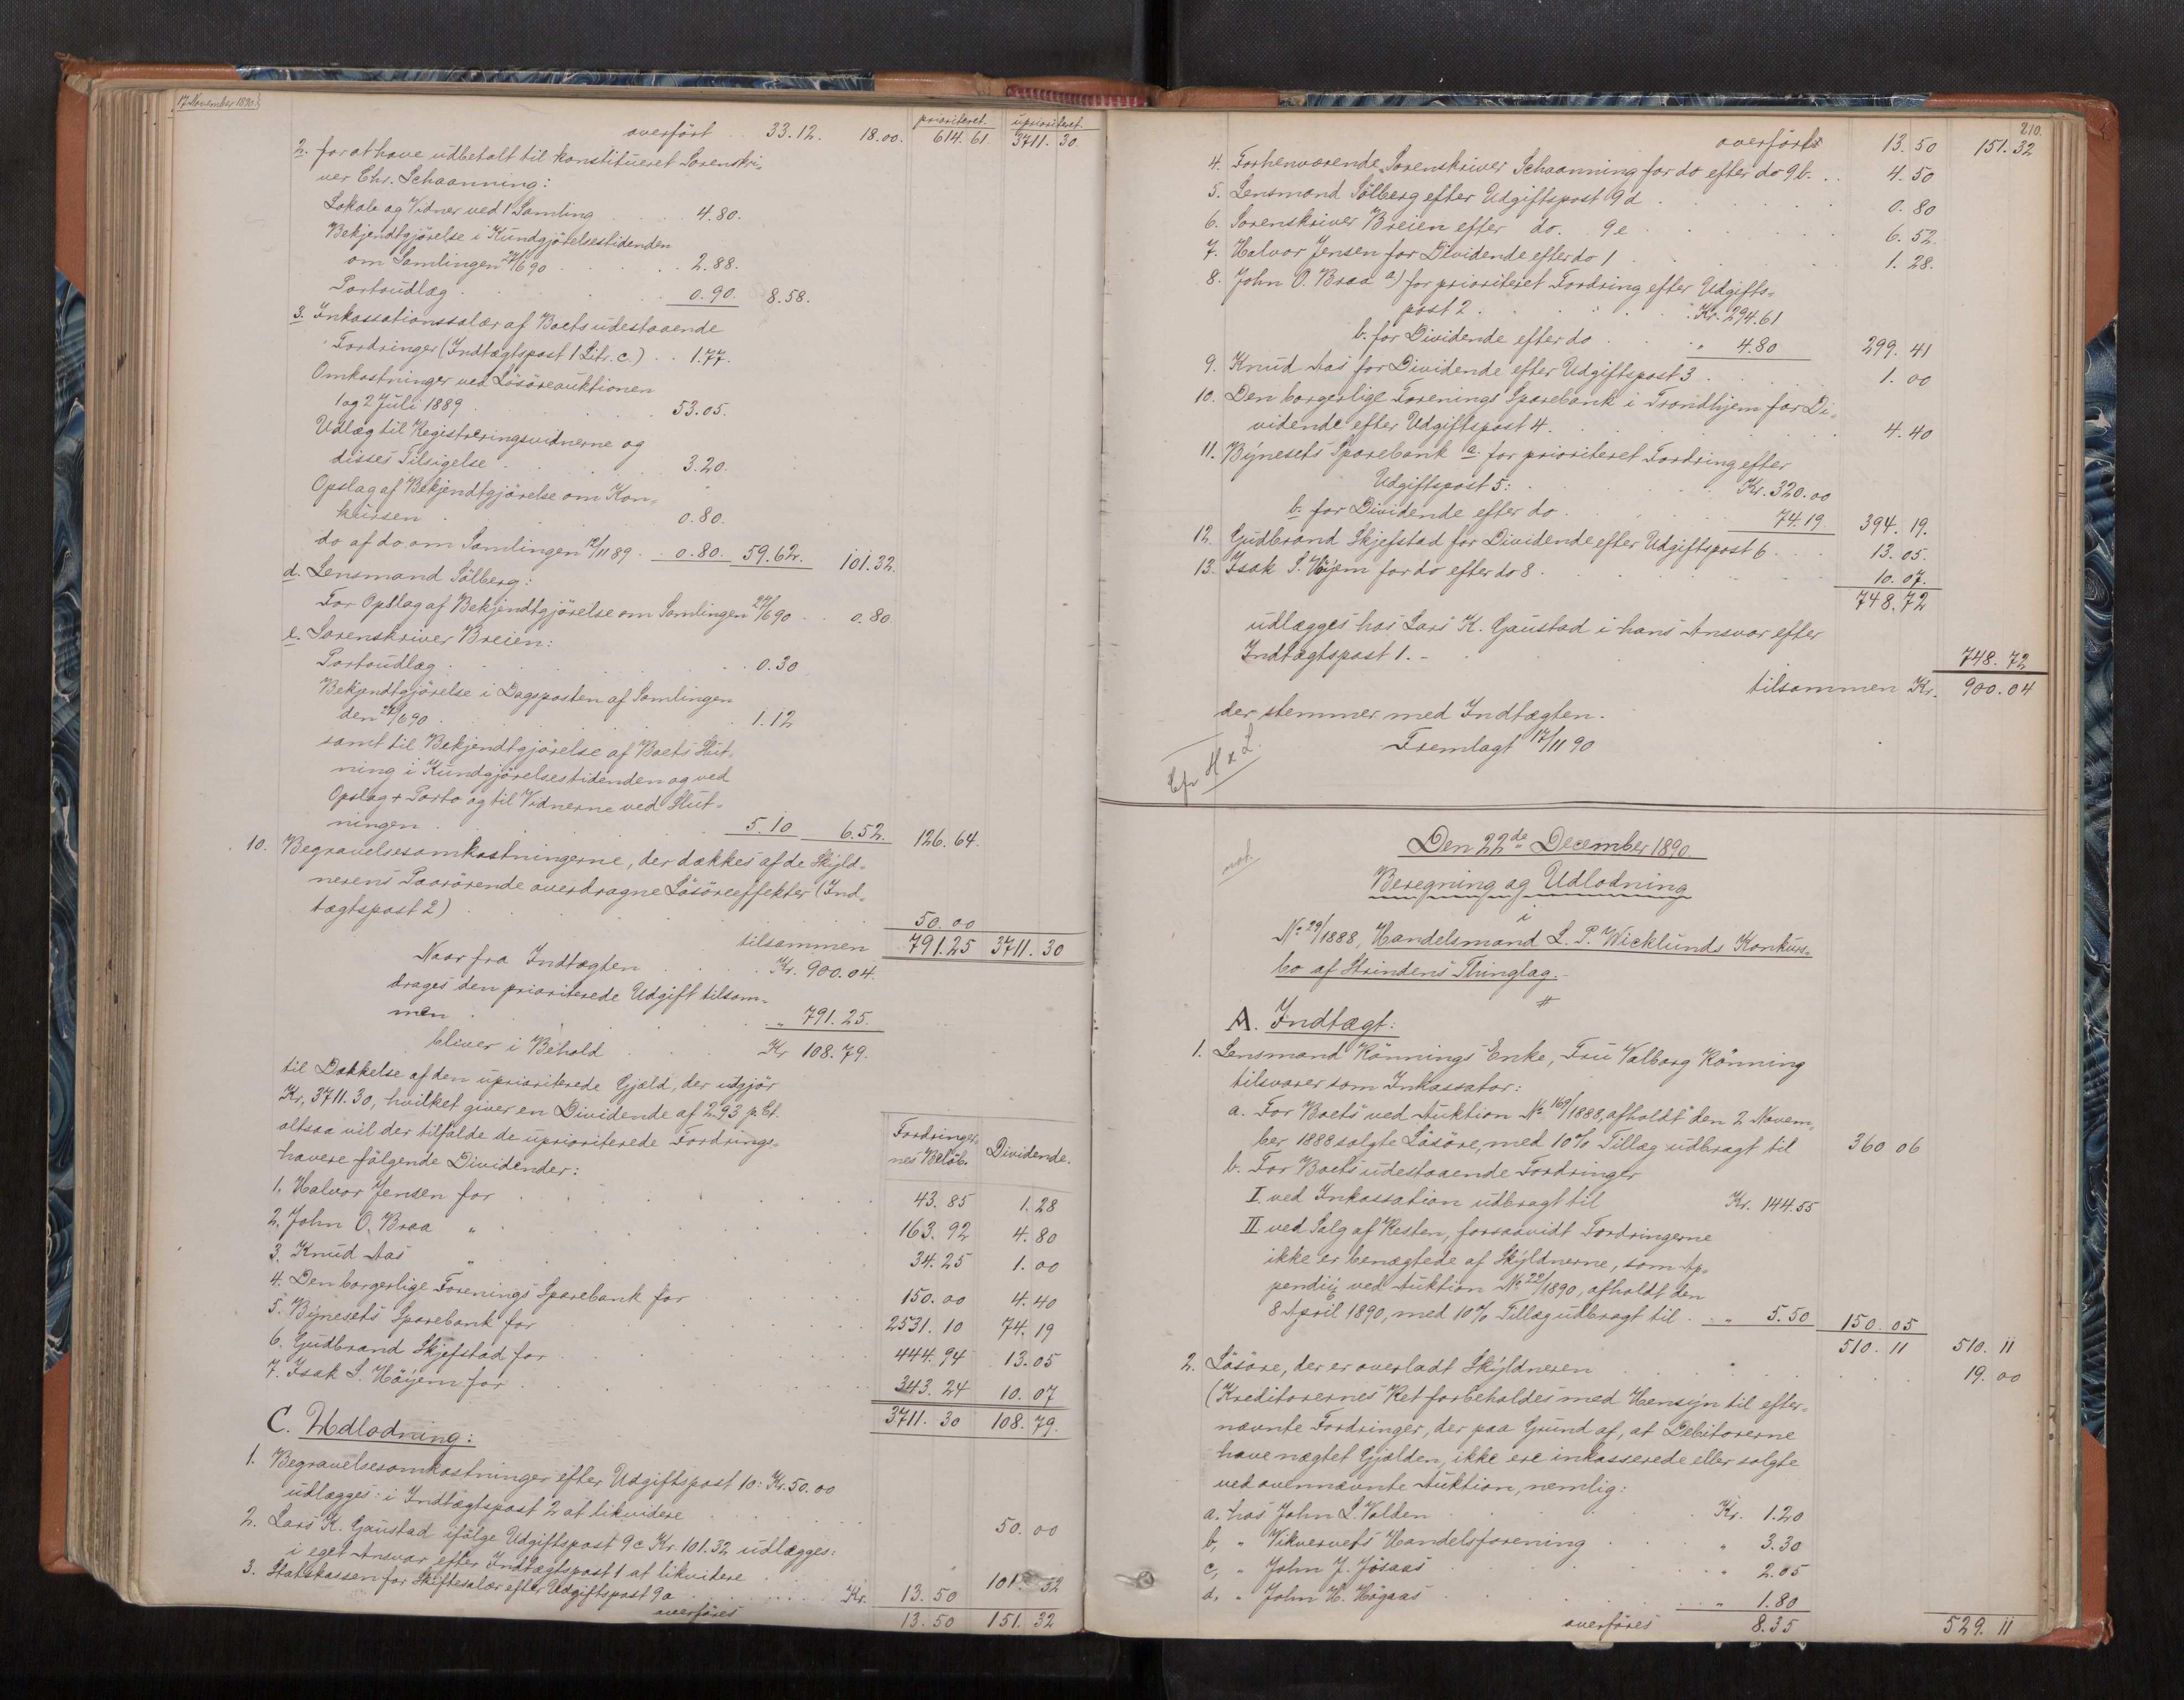 17 November 1890.
prioriteret. uprioriteret.
overført . . 33.12. 18.00. 614.61 3711.30.
2. for at have udbetalt til konstitueret Sorenskri-
ver Chr. Schaanning:
Lokale og Vidner ved 1 Samling . . . . 4.80.
Bekjendtgjørelse i Kundgjørelsestidenden
om Samlingen 27/6 90 . . . . . 2.88.
Portoudlæg . . . . . 0.90. 8.58.
3. Inkassationssalær af Boets udestaaende
Fordringer (Indtægtspost 1 Litr. c.) . . 1.77.
Omkostninger ved Løsøreauktionen
1 og 2 Juli 1889 . . . . 53.05.
Udlæg til Registreringsvidnerne og
disses Tilsigelse . . . . . 3.20.
Opslag af Bekjendtgjørelse om Kon-
kursen . . . . 0.80.
do af do om Samlingen 12/11 89 . . 0.80. 59.62. 101.32.
d. Lensmand Sölberg:
For Opslag af Bekjendtgjørelse om Samlingen 27/6 90 . . 0.80.
e. Sorenskriver Breien:
Portoudlæg . . . . . 0.30
Bekjendtgjørelse i Dagsposten af Samlingen
den 27/6 90 . . . . . 1.12
samt til Bekjendtgjørelse af Boets Slut-
ning i Kundgjørelsestidenden og ved
Opslag + Porto og til Vidnerne ved Slut-
ningen . . . . 5.10 6.52. 126.64.
10. Begravelsesomkostningerne, der dækkes af de Skyld-
nerens Paarørende overdragne Løsøreeffekter (Ind-
tægtspost 2) . . . . . 50.00
tilsammen 791.25 3711.30
Naar fra Indtægten . . . . Kr. 900.04.
drages den prioriterede Udgift tilsam-
men . . . . . „ 791.25.
bliver i Behold . . . . Kr 108.79.
til Dækkelse af den uprioriterede Gjæld, der udgjør
Kr. 3711.30, hvilket giver en Dividende af 2.93 p. Ct.
altsaa vil der tilfalde de uprioriterede Fordrings-
havere følgende Dividender:
Fordringer- nes Beløb. Dividende.
1. Halvor Jensen for . . . . 43.85 1.28
2. John O. Braa „ . . . . 163.92 4.80
3. Knud Aas „ . . . . 34.25 1.00
4. Den borgerlige Forenings Sparebank for . . . 150.00 4.40
5. Bynesets Sparebank for . . . . 2531.10 74.19
6. Gudbrand Skjefstad for . . . . 444.94 13.05
7. Isak S. Höyem for . . . . 343.24 10.07
3711.30 108.79.
C. Udlodning:
1. Begravelsesomkostninger efter Udgiftspost 10: Kr. 50.00
udlægges: i Indtægtspost 2 at likvidere . . . . 50.00
2. Lars K. Gaustad ifølge Udgiftspost 9c Kr. 101.32 udlægges:
i eget Ansvar efter Indtægtspost 1 at likvidere . . . 101.32
3. Statskassen for Skiftesalær efter Udgiftspost 9a . . . . Kr. 13.50
overføres 13.50 151.32
210.
overført 13.50 151.32
4. Forhenværende Sorenskriver Schaanning for do efter do 9b. . . 4.50
5. Lensmand Sölberg efter Udgiftspost 9d . . . . 0.80
6. Sorenskriver Breien efter do. . 9e . . . . 6.52.
7. Halvor Jensen for Dividende efter do 1 . . . . 1.28.
8. John O. Braa a) for prioriteret Fordring efter Udgifts-
post 2 . . . . Kr. 294.61
b. for Dividende efter do . . . . „ 4.80 299.41
9. Knud Aas for Dividende efter Udgiftspost 3 . . . . 1.00
10. Den borgerlige Forenings Sparebank i Trondhjem for Di-
vidende efter Udgiftspost 4. . . . . 4.40
11. Bynesets Sparebank a. for prioriteret Fordring efter
Udgiftspost 5: . . . . Kr. 320.00
b. for Dividende efter do . . . . 74.19. 394.19.
12. Gudbrand Skjefstad for Dividende efter Udgiftspost 6 . . . 13.05.
13. Isak S. Höyem for do efter do 8 . . . . 10.07.
748.72
udlægges hos Lars K. Gaustad i hans Ansvar efter
Indtægtspost 1. – 748.72
tilsammen Kr. 900.04
der stemmer med Indtægten.
Fremlagt 17/11 90
Cfr H x L.
Den 22de December 1890.
not.
Beregning og Udlodning
i
No 29/1888, Handelsmand L. P. Wicklunds Konkurs-
bo af Strindens Thinglag. –
A. Indtægt:
1. Lensmand Rönnings Enke, Fru Valborg Rönning
tilsvarer som Inkassator:
a. For Boets ved Auktion No 169/1888, afholdt den 2 Novem-
ber 1888 solgte Løsøre, med 10% Tillæg udbragt til 360 06
b. For Boets udestaaende Fordringer
I ved Inkassation udbragt til Kr. 144.55
II ved Salg af Resten, forsaavidt Fordringerne
ikke er benægtede af Skyldnerne, som Ap-
pendix ved Auktion No 22/1890, afholdt den
8 April 1890, med 10% Tillæg udbragt til . . „ 5.50 150.05
510.11 510.11
2. Løsøre, der er overladt Skyldneren . . . . 19.00
(Kreditorernes Ret forbeholdes med Hensyn til efter-
nævnte Fordringer, der paa Grund af, at Debitorerne
have nægtet Gjælden, ikke ere inkasserede eller solgte
ved ovennævnte Auktion, nemlig:
a. hos John L. Volden . . . . Kr. 1.20
b, „ Vikvervets Handelsforening . . . „ 3.30
c, „ John J. Jösaas . . . . „ 2.05
d. „ John H. Högaas . . . . „ 1.80
overføres 8.35 529.11